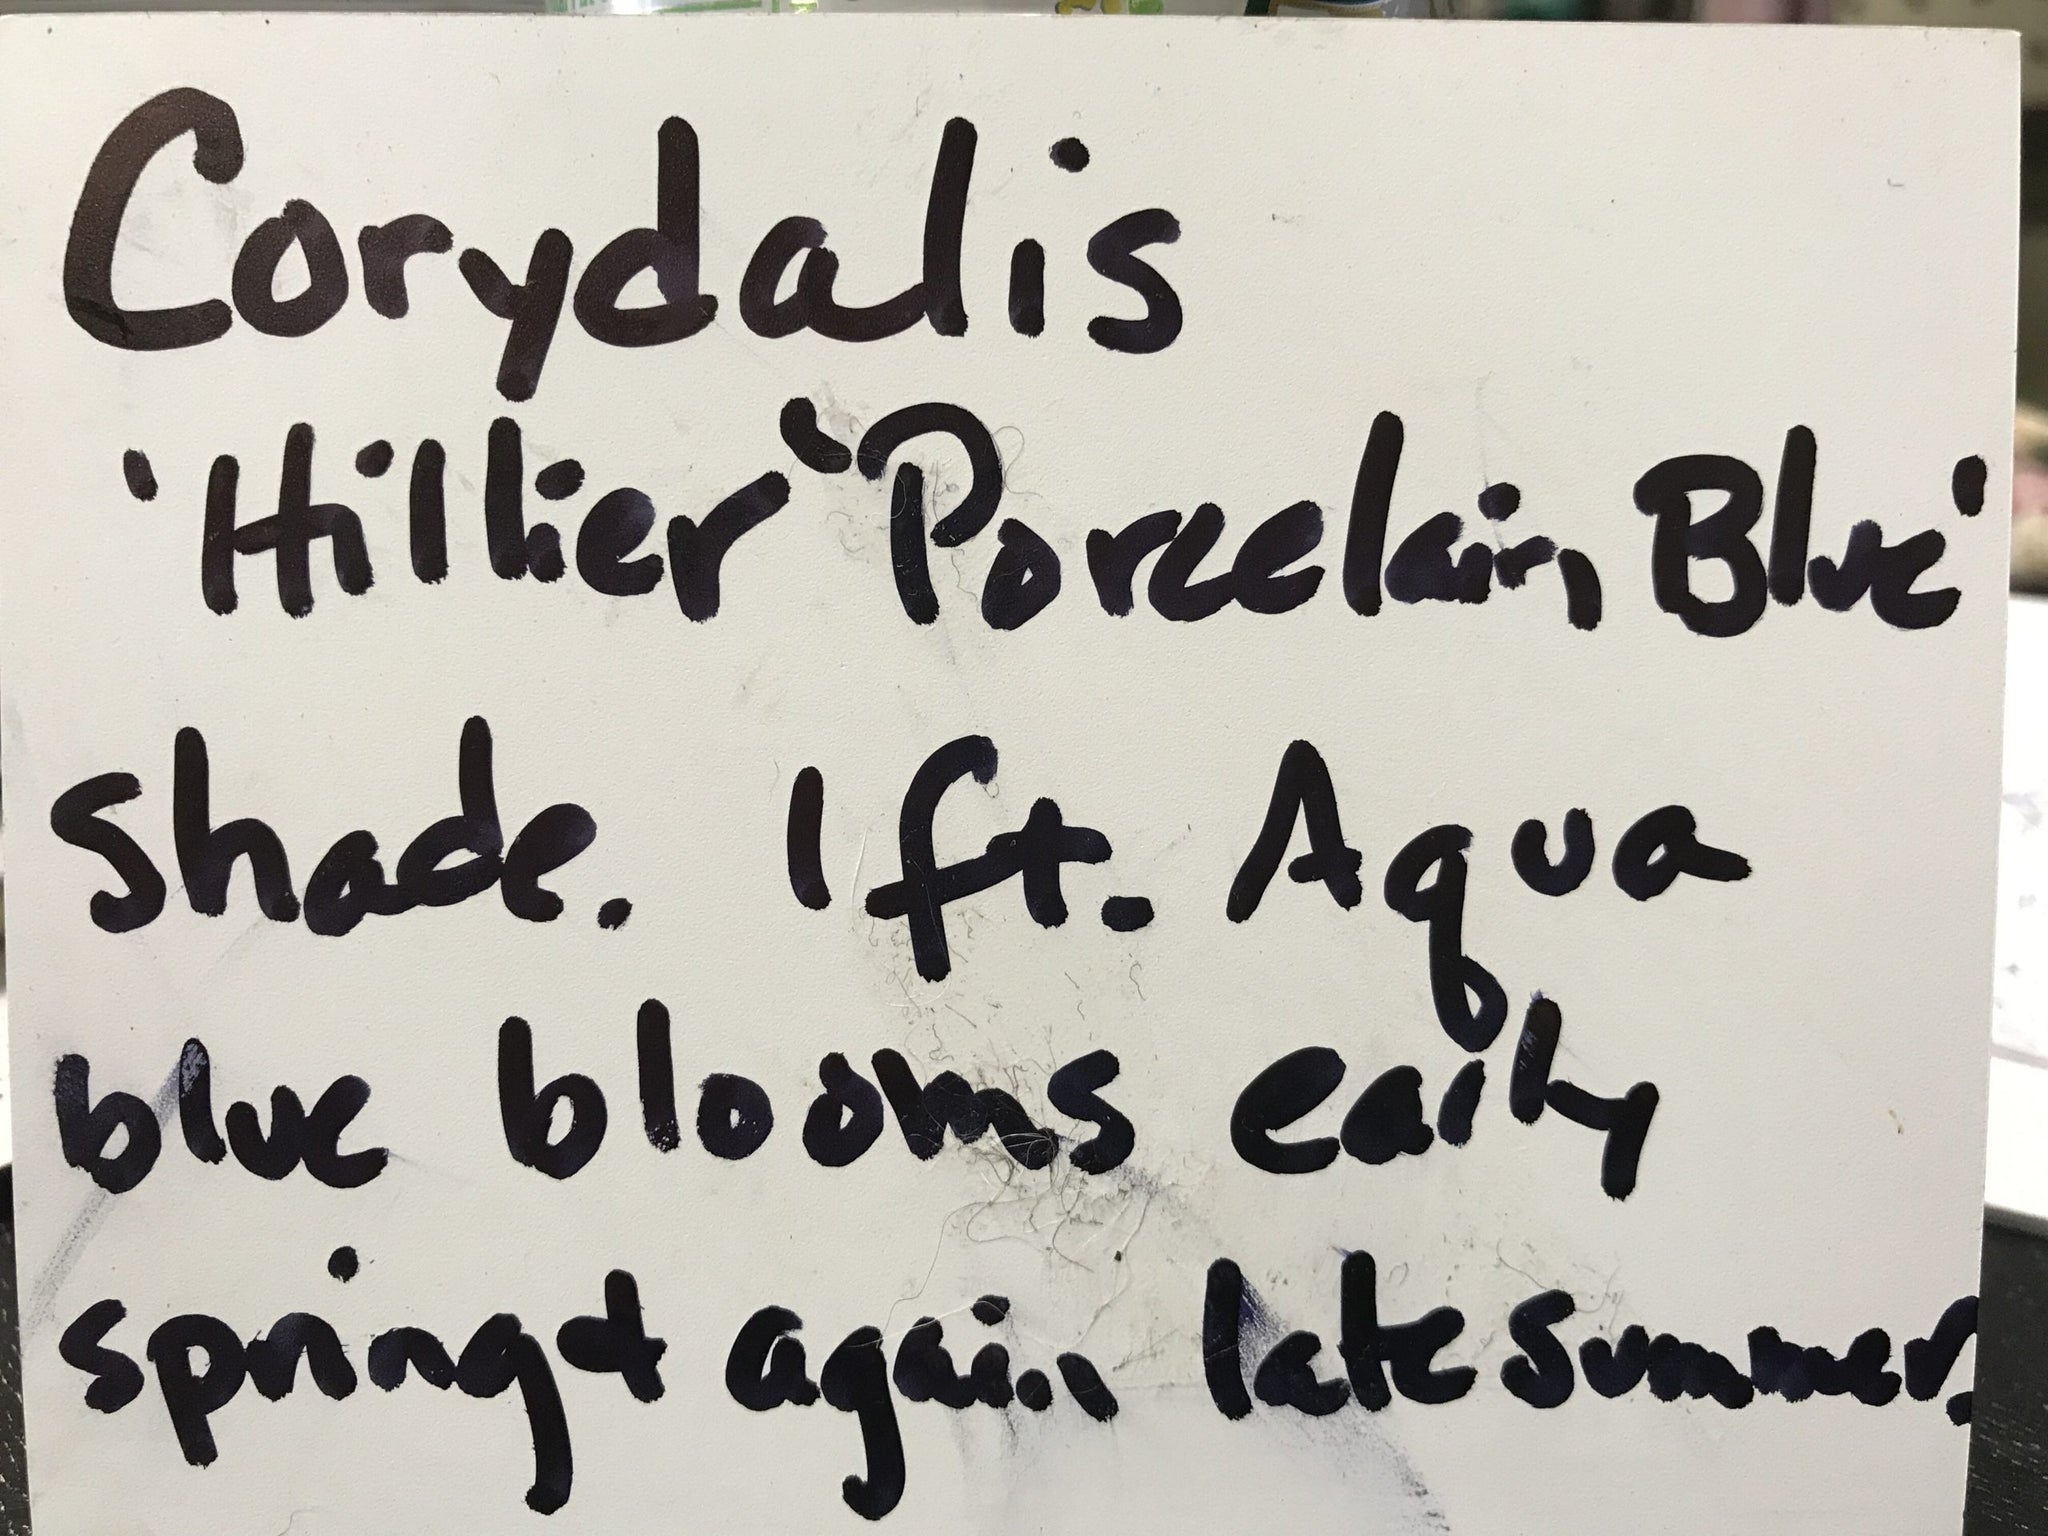 Corydalis
'Hillier' 'Porcelain Blue'
Shade. 1 ft. Aqua
blue blooms early
spring + again late summer.